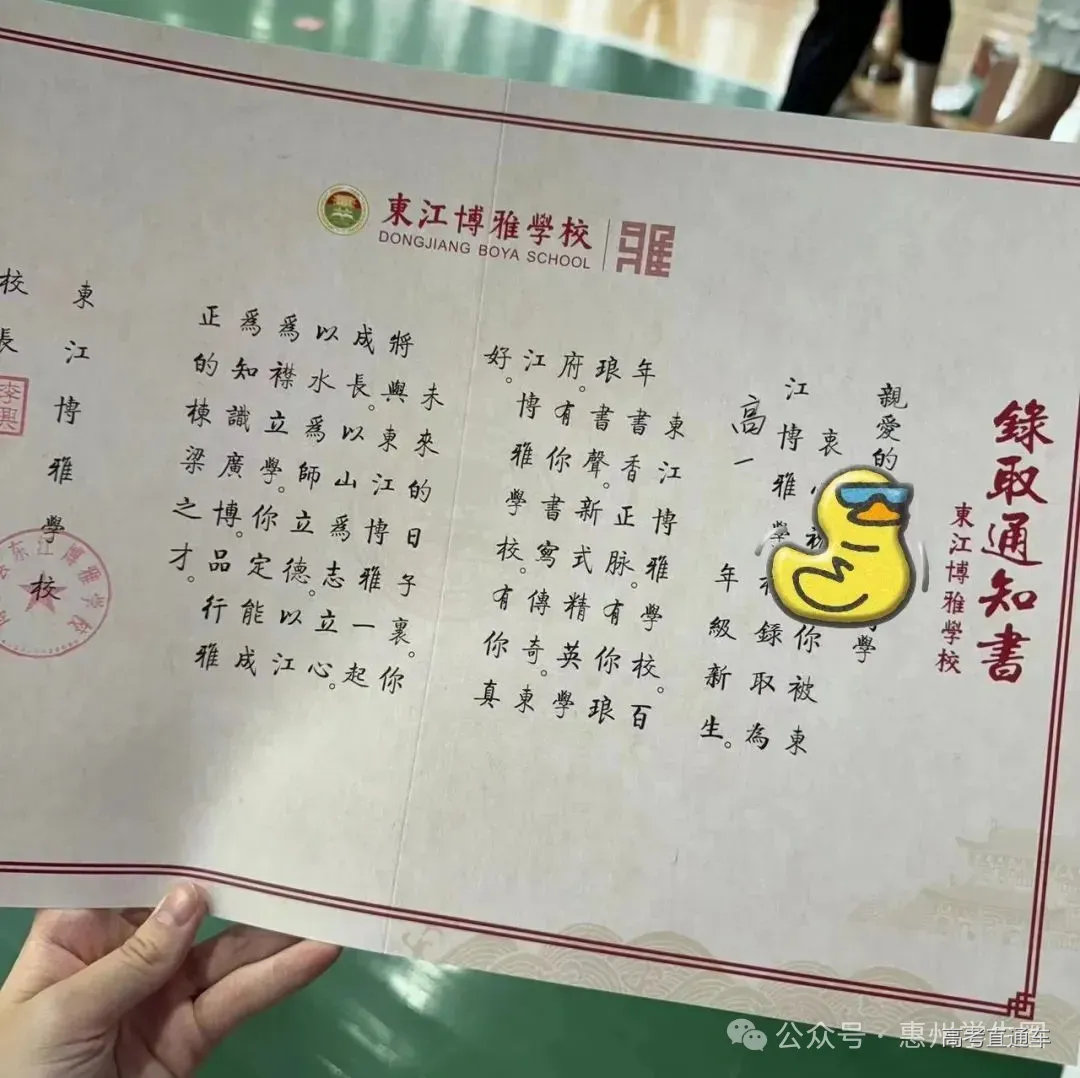 東江博雅學校
DONGJIANG BOYA SCHOOL
雅
錄取通知書
東江博雅學校
親愛的 學
衷心祝 你被東
江博雅學校錄取為
高一年級新生。
東江博雅學校。百
年書香正脈。有你琅
琅書聲。新式精英學
府。有你書寫傳奇。東
江博雅學校。有你真
好。
未來的日子裏。你
將與東江博雅一起
成長。以山為志立心。
以水為師。立德。以江
為襟立學。你定能成
為知識廣博。品行雅
正的棟梁之才。
東江博雅學校
校長
李興
东江博雅学校
公众号·惠州学生圈
高考直通车